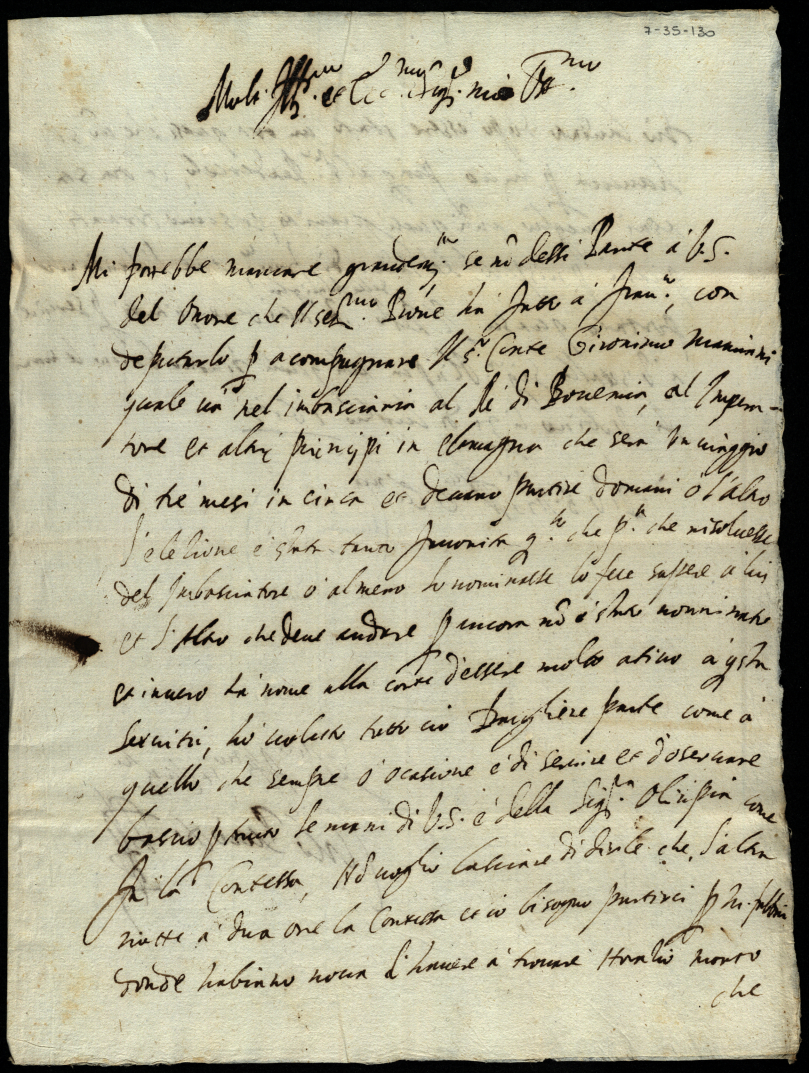 7-35-130
Molt. Ill.re et Sig.r mio
Mi parebbe mancare grandem.te se nõ dessi Parte à V.S.
del Onore che Il ser.mo Pione ha fatto à Fran.o, con
deputarlo p acompagnare Il S.r Conte Gironimo
quale uà nel imbasciaria al Rè di Bouemia, al Impera-
tore et altri principi in Alemagna che serà un uiaggio
di tre mesi in circa et deuano partire domani ò l'altro
l'eletione è stata tanto fauorita q.to che p.a che risoluesse
del Imbasciatore ò almeno lo nominasse lo fece sapere à lui
et l'altro che deue andare p ancora nõ è stato nominato
et in uero hà nome alla corte d'essere molto atiuo à q.sta
seruitù, hò uoluto tutto ciò Porgliene parte come à
quello che sempre ò ocasione è di seruire et d'oseruare
bascio p tanto le mani di V.S. è della Sig.ra Olimpia come
fa la Contessa, Nõ uoglio lasciare di dirle che, l'altra
notte à dua ore la Contessa et io bisognò partirci p
donde habiamo noua d'hauere à trouare morto
che